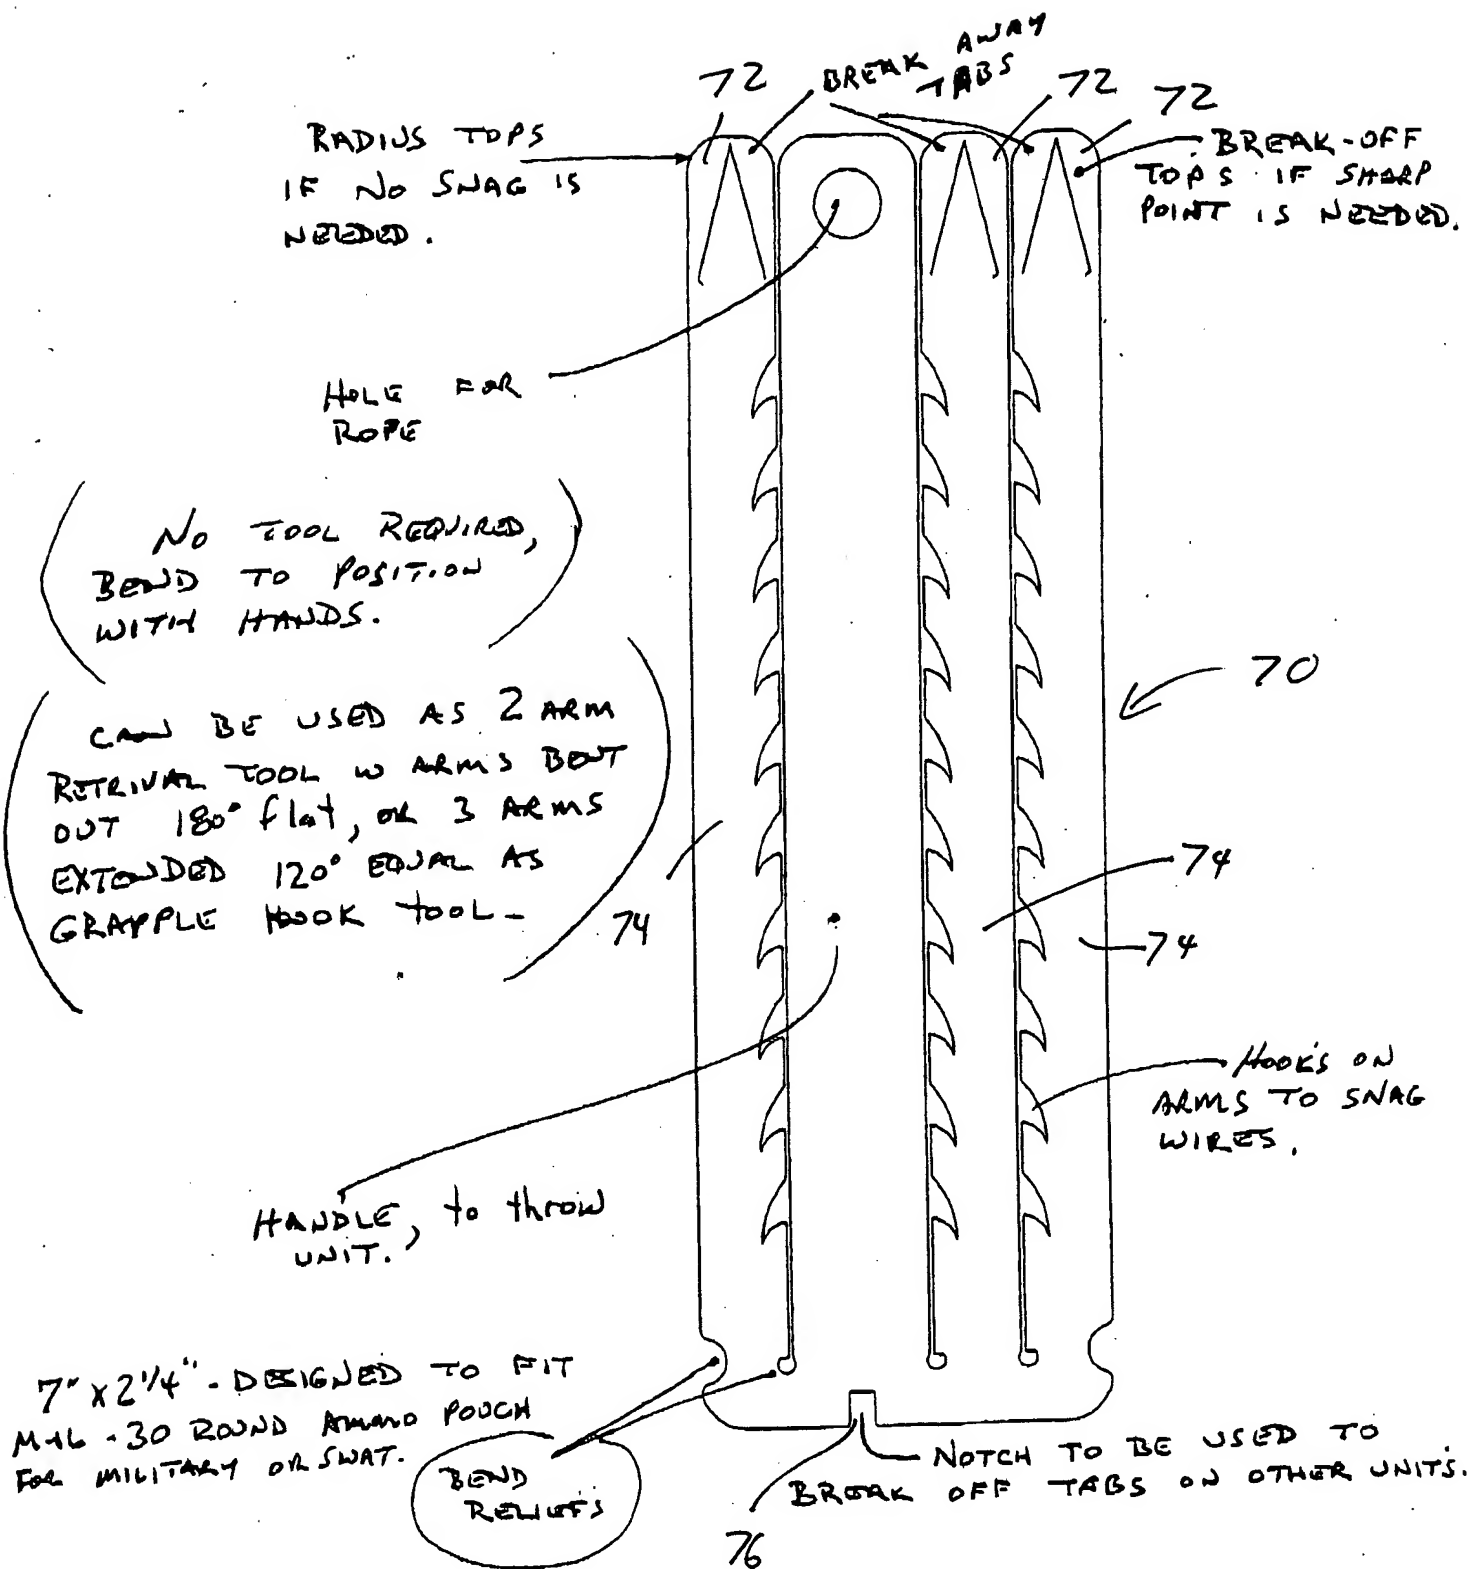 72
BREAK AWAY
TABS
72
72
RADIUS TOPS
IF NO SNAG IS
NEEDED.
BREAK-OFF
TOPS IF SHARP
POINT IS NEEDED.
HOLE FOR
ROPE
NO TOOL REQUIRED,
BEND TO POSITION
WITH HANDS.
70
CAN BE USED AS 2 ARM
RETRIVAL TOOL W ARMS BENT
OUT 180° flat, OR 3 ARMS
EXTENDED 120° EQUAL AS
GRAPPLE HOOK TOOL-
74
74
74
HOOK'S ON
ARMS TO SNAG
WIRES.
HANDLE, to throw
UNIT.
7" X 2 1/4" - DESIGNED TO FIT
M-16 - 30 ROUND AMMO POUCH
FOR MILITARY OR SWAT.
BEND
RELIEFS
NOTCH TO BE USED TO
BREAK OFF TABS ON OTHER UNITS.
76